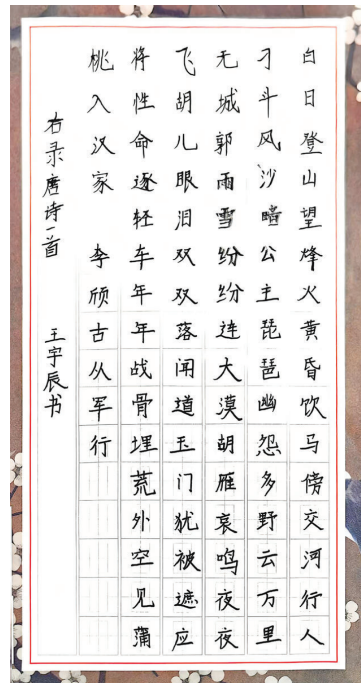 白日登山望烽火黄昏饮马傍交河行人
刁斗风沙暗公主琵琶幽怨多野云万里
无城郭雨雪纷纷连大漠胡雁哀鸣夜夜
飞胡儿眼泪双双落闻道玉门犹被遮应
将性命逐轻车年年战骨埋荒外空见蒲
桃入汉家 李颀古从军行
右录唐诗一首 王宇辰书